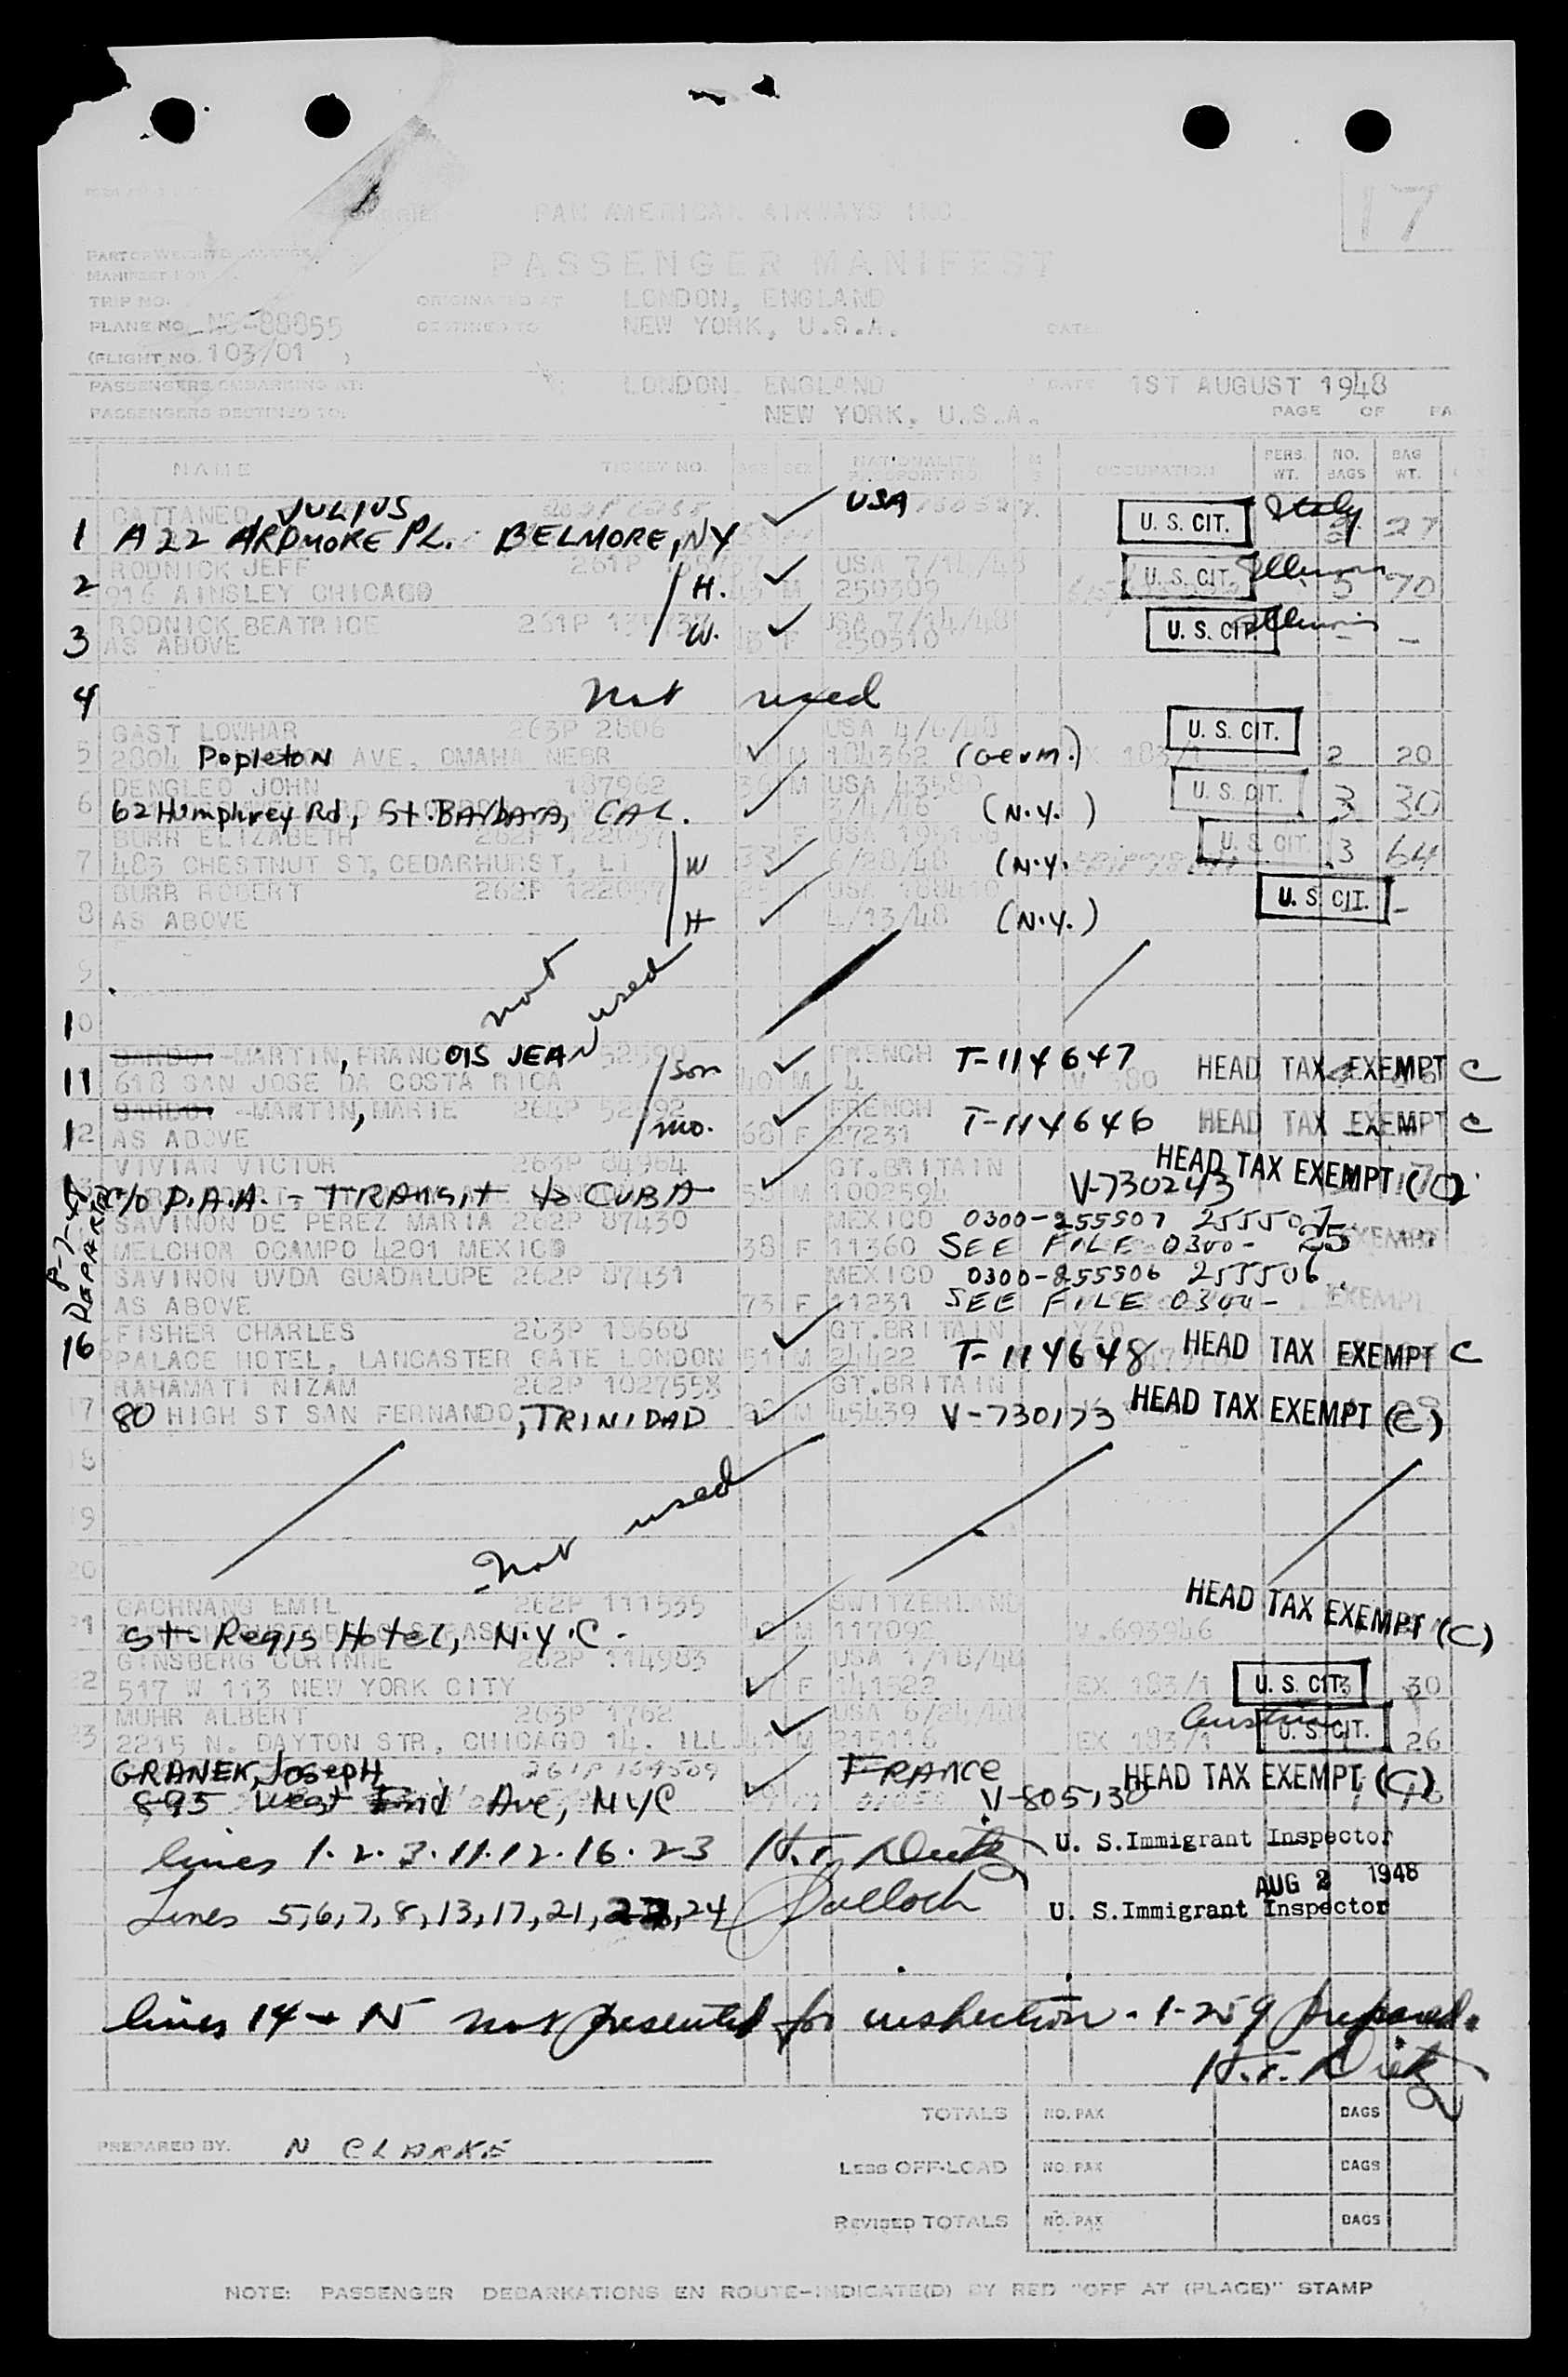 17
PAN AMERICAN AIRWAYS INC
PASSENGER MANIFEST
TRIP NO.
ORIGINATED AT LONDON, ENGLAND
PLANE NO. NC-88855 DESTINED TO NEW YORK, U.S.A. DATE
(FLIGHT NO. 103/01 )
PASSENGERS EMBARKING AT: LONDON, ENGLAND DATE 1ST AUGUST 1948
PASSENGERS DESTINED TO: NEW YORK, U.S.A. PAGE OF PA
NAME TICKET NO. AGE SEX NATIONALITY OCCUPATION PERS. WT. NO. BAGS BAG WT.
CATTANEO, JULIUS USA
1 A22 ARDMORE PL. BELMORE, NY U. S. CIT. Italy 27
RODNICK JEFF 261P USA 7/14/48
2 916 AINSLEY CHICAGO H. M 250309 U. S. CIT. Illinois 5 70
RODNICK BEATRICE 261P USA 7/14/48
3 AS ABOVE W. F 250310 U. S. CIT. Illinois - -
4 Not used
GAST LOWHAR 263P 2806 USA 4/6/48
5 2804 Popleton AVE, OMAHA NEBR M 184362 (Germ.) U. S. CIT. 2 20
DENGLEO JOHN 187962 36 M USA 43580
6 62 Humphrey Rd, St. Barbara, CAL. (N.Y.) U. S. CIT. 3 30
BURR ELIZABETH 262P 122057 F USA
7 483 CHESTNUT ST, CEDARHURST, LI W 33 6/28/48 (N.Y. U. S. CIT. 3 64
BURR ROBERT 262P 122057 29 USA
8 AS ABOVE H 4/13/48 (N.Y.) U. S. CIT. -
9 not used
10
MARTIN, FRANCOIS JEAN FRENCH T-114647 HEAD TAX EXEMPT C
11 618 SAN JOSE DA COSTA RICA Son 40 M
-MARTIN, MARIE 264P FRENCH T-114646 HEAD TAX EXEMPT C
12 AS ABOVE Mo. 68 F 27231
VIVIAN VICTOR 263P 84964 GT.BRITAIN HEAD TAX EXEMPT (C)
c/o P.A.A. - TRANSIT to CUBA M 1002594 V-730243
SAVINON DE PEREZ MARIA 262P 87430 MEXICO 0300-255507 255507
MELCHOR OCAMPO 4201 MEXICO 38 F 11360 SEE FILE 0300- 25 EXEMPT
SAVINON UVDA GUADALUPE 262P 87431 MEXICO 0300-255506 255506
AS ABOVE 73 F 11231 SEE FILE 0300- EXEMPT
FISHER CHARLES 263P 18668 GT.BRITAIN
16 PALACE HOTEL, LANCASTER GATE LONDON 51 M 24422 T-114648 HEAD TAX EXEMPT C
RAHAMATI NIZAM 262P GT.BRITAIN
17 80 HIGH ST SAN FERNANDO, TRINIDAD M 45439 V-730173 HEAD TAX EXEMPT (C)
18
19 Not used
20
GACHNANG EMIL 262P 111535 SWITZERLAND
21 St. Regis Hotel, N.Y.C. M V.693946 HEAD TAX EXEMPT (C)
GINSBERG CORINNE 262P 114983 USA 1/18/48
22 517 W 113 NEW YORK CITY F 141522 EX 183/1 U. S. CIT. 3 30
MUHR ALBERT 263P 1762 USA 6/24/48 Austria
23 2215 N. DAYTON STR, CHICAGO 14. ILL 41 M 215116 EX 183/1 U. S. CIT. 26
GRANEK, JOSEPH FRANCE HEAD TAX EXEMPT (C)
895 West End Ave, NYC V-805130
lines 1. 2. 3. 11. 12. 16. 23 U. S.Immigrant Inspector
AUG 2 1948
Lines 5, 6, 7, 8, 13, 17, 21, 22, 24 U. S.Immigrant Inspector
lines 14 + 15 not presented for inspection. I-259 prepared.
TOTALS NO. PAX BAGS
PREPARED BY. N CLARKE
LESS OFF-LOAD NO. PAX BAGS
REVISED TOTALS NO. PAX BAGS
NOTE: PASSENGER DEBARKATIONS EN ROUTE-INDICATE(D) BY RED "OFF AT (PLACE)" STAMP